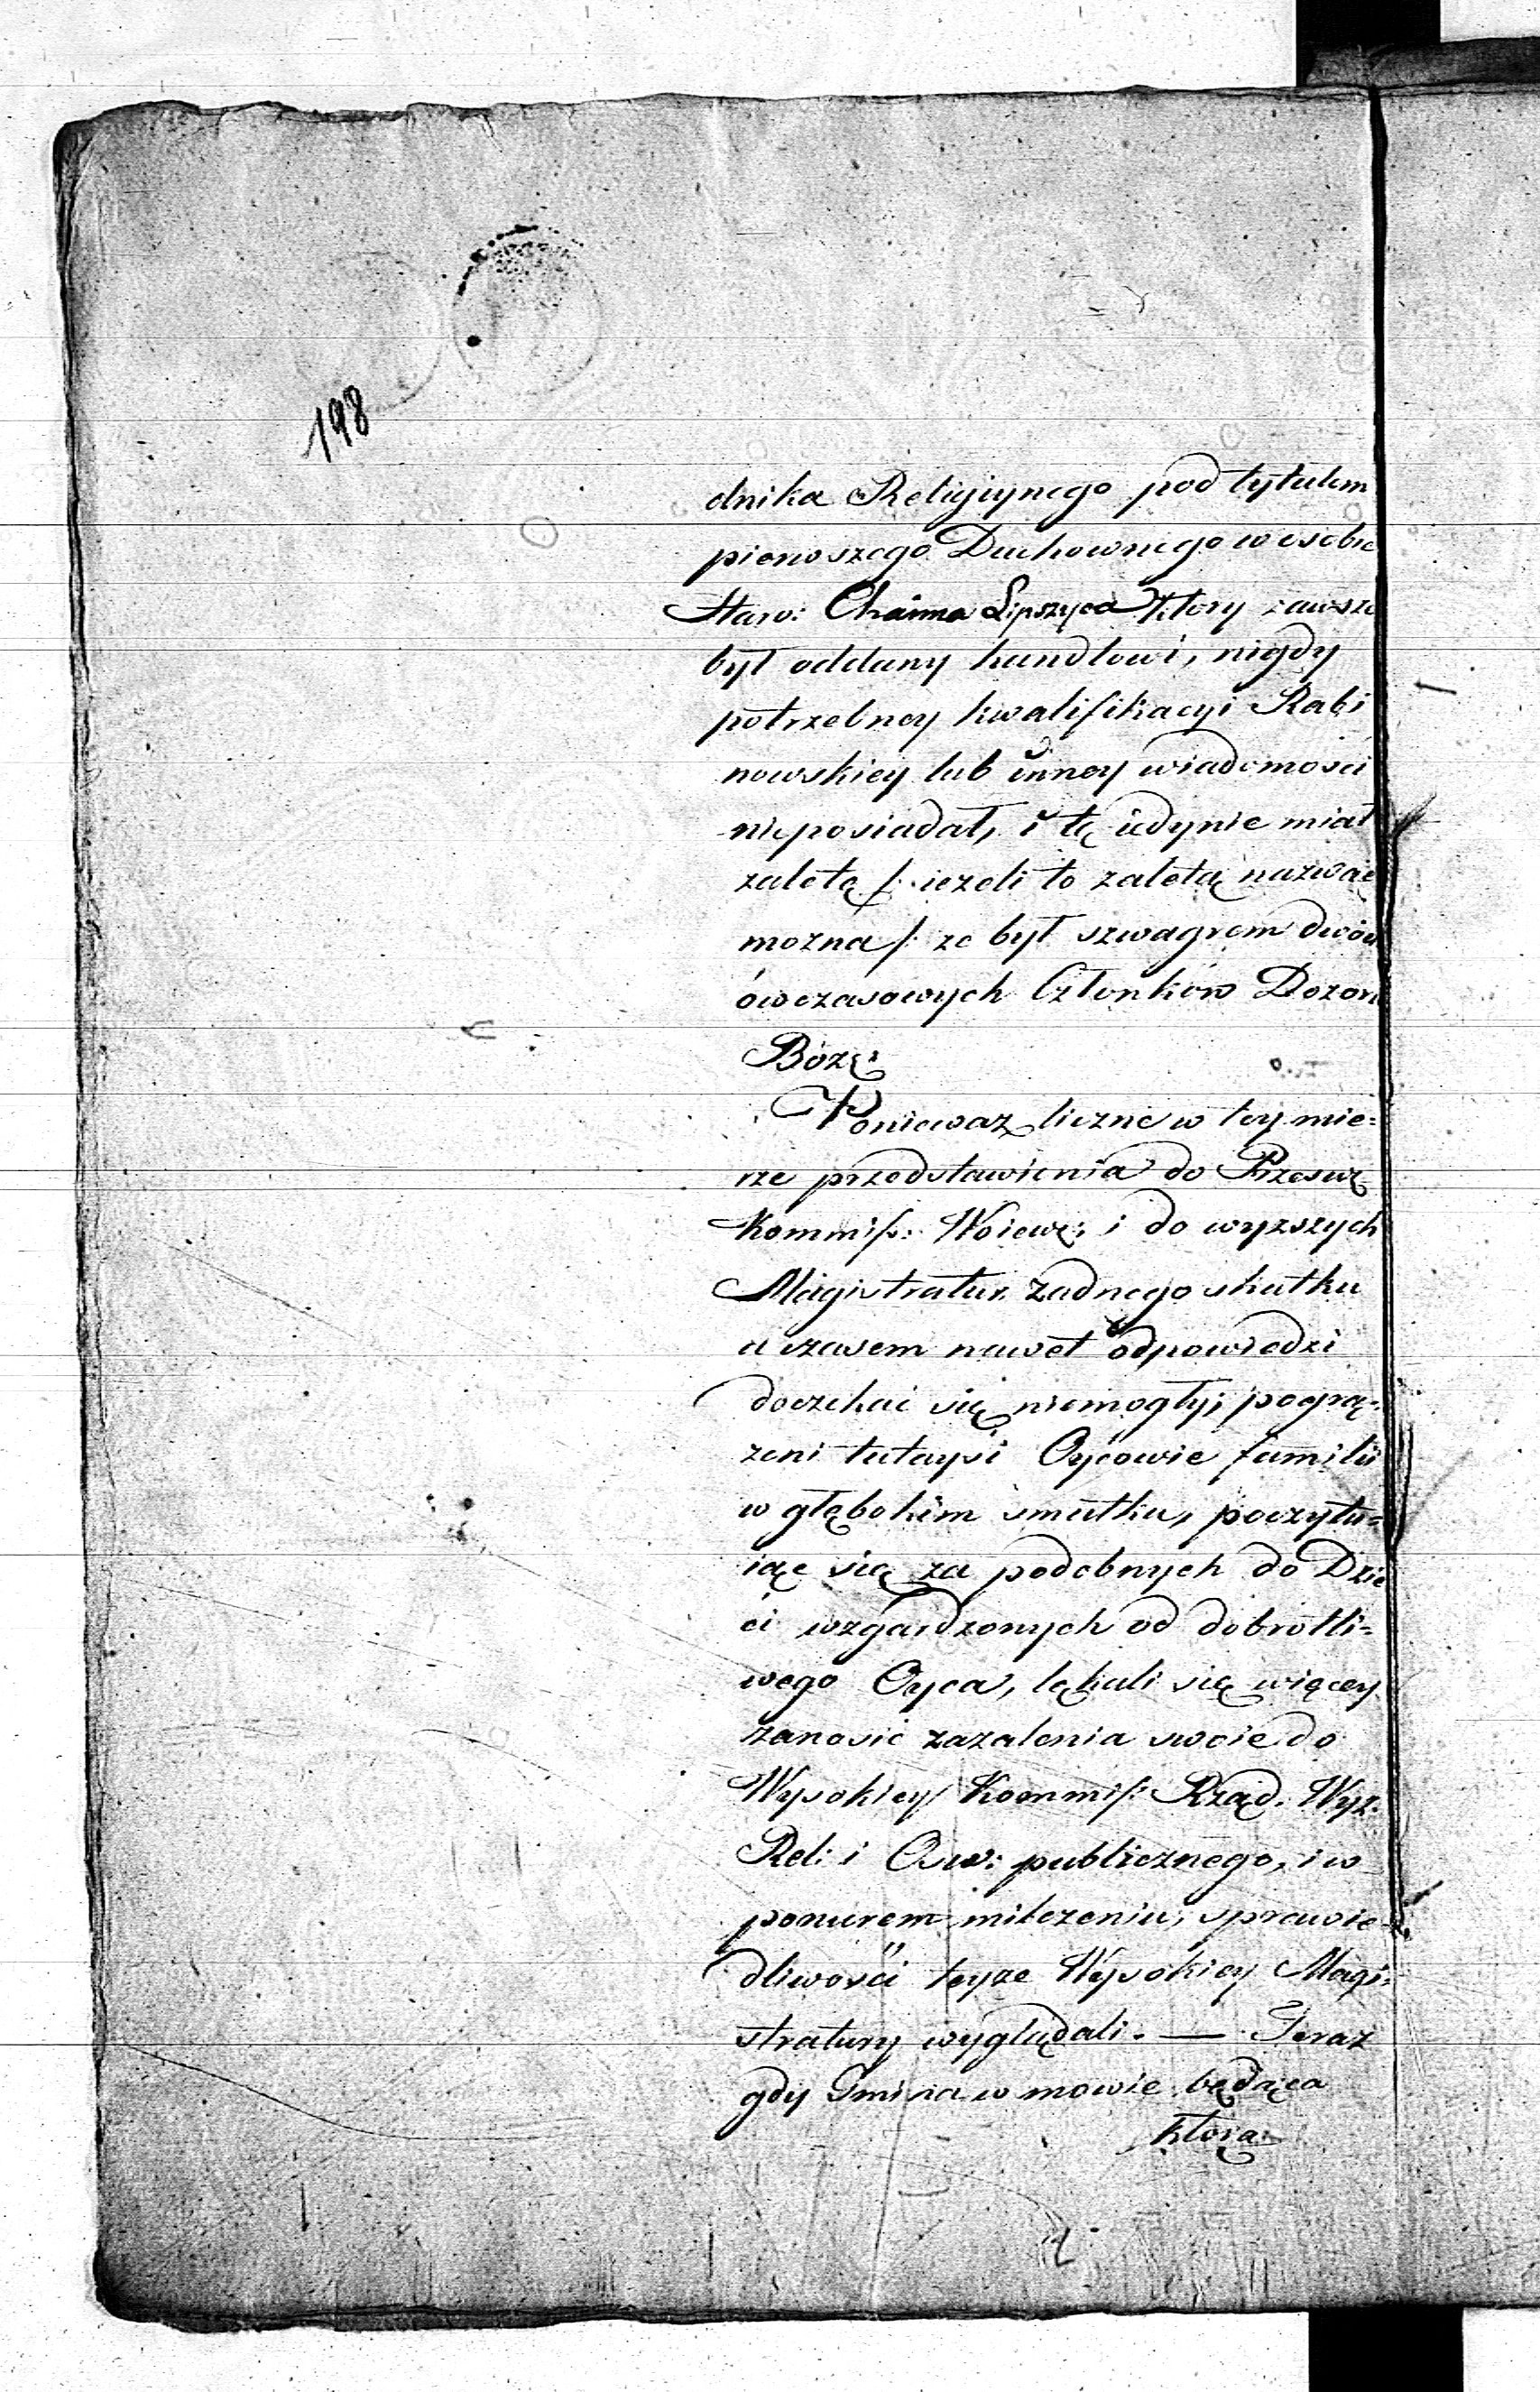 198
dnika Religiynego pod tytułem
pierwszego Duchownego w osobie
Staro: Chaima Lipszyca Ktory zawsze
był oddany handlowi, nigdy
potrzebney kwalifikacyi Rabi
nowskiey lub inney wiadomości
nieposiadał, i tę iedynie miał
zaletę /: ieżeli to zaletą nazwać
można /: że był szwagrem dwóch
ówczasowych Członków Dozoru
Bożę:
Ponieważ liczne w tey mie=
rze przedstawienia do Prześwę
Kommiss: Woiewę: i do wyższych
Magistratur żadnego skutku
a czasem nawet odpowiedzi
doczekać się niemogły; pogrą=
żeni tutaysi Oycowie familii
w głębokim smutku, poczytu=
iąc się za podobnych do Dzie
ci wzgardzonych od dobrotli=
wego Oyca, lękali się więcey
zanosić zażalenia swoie do
Wysokiey Kommiss: Rząd. Wyz:
Reli: i Ośw: publicznego, i w
ponurem milczeniu, sprawie=
dliwości teyże Wysokiey Magi=
stratury wyglądali. — Teraz
gdy Gmina w mowie będąca
która